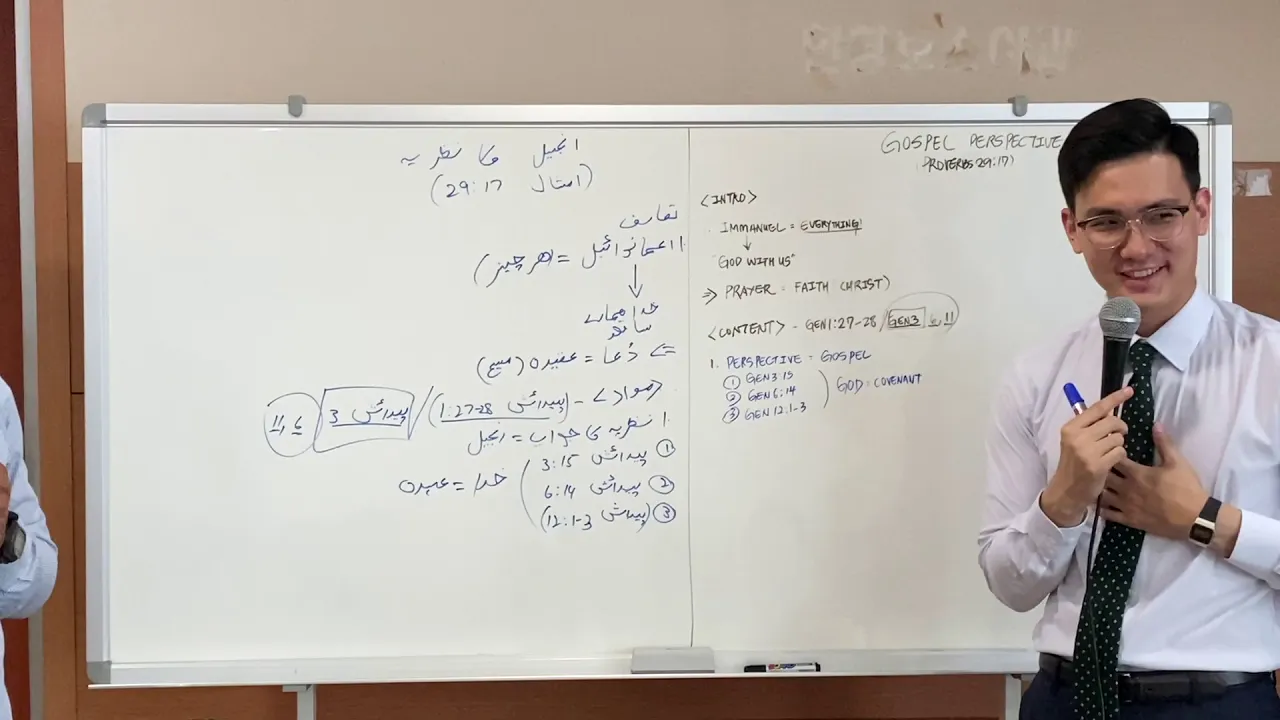 انجیل کا نظریہ
(امثال 29:17)
تعارف
۱ اعمانوائیل = (ہر چیز)
خدا ہمارے
ساتھ
دُعا = عقیدہ (مسیح)
مواد - (پیدائش 1:27-28) / پیدائش 3 6, 11
۱. نظریہ کا جواب = انجیل
① پیدائش 3:15
② پیدائش 6:14
③ (پیدائش 12:1-3)
خدا = عہدہ
GOSPEL PERSPECTIVE
(PROVERBS 29:17)
<INTRO>
. IMMANUEL = EVERYTHING!
↓
"GOD WITH US"
=> PRAYER = FAITH (CHRIST)
<CONTENT> - GEN1:27-28 / GEN3 6, 11
1. PERSPECTIVE = GOSPEL
① GEN 3:15
② GEN 6:14
③ GEN 12:1-3
GOD = COVENANT